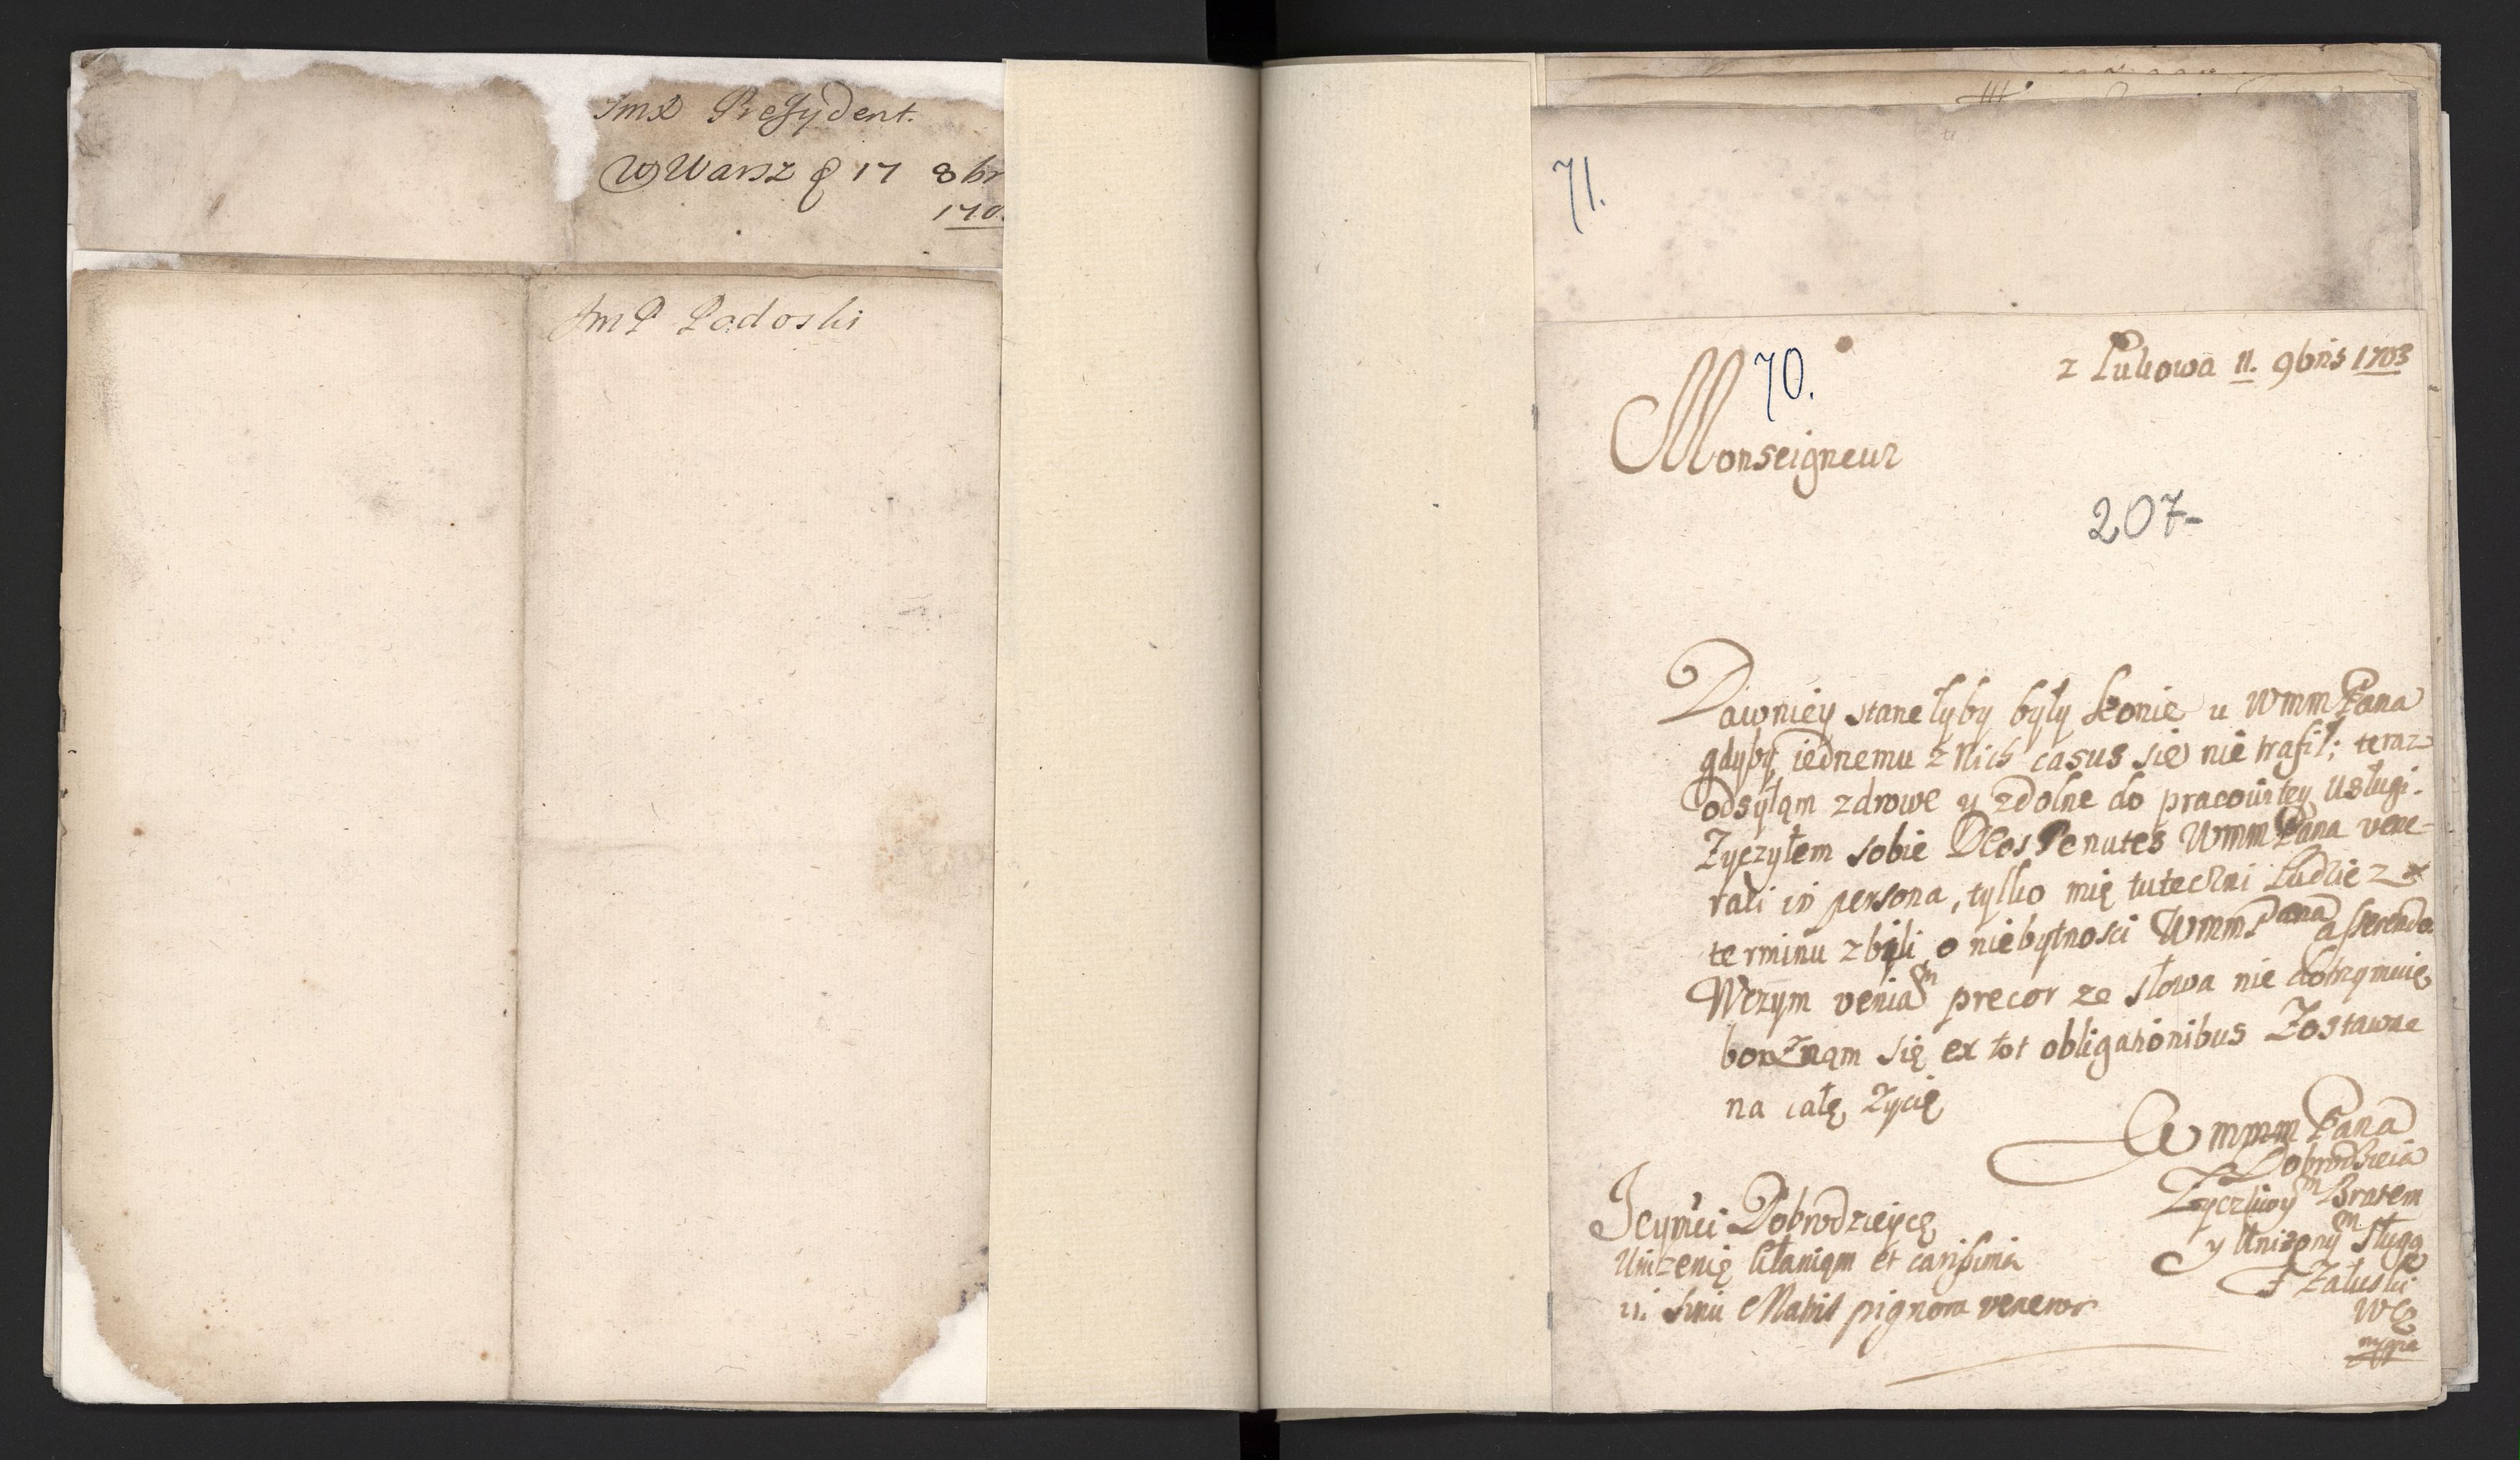 JmX Presydent.
W Warsz 17 8br
170
JmP Podoski
71.
70.
z Łukowa 11. 9bris 1703
Monseigneur
207-
Dawniey stanełyby były konie u WmmPana
gdyby iednemu z nich casus się nie trafił; teraz
odsyłąm zdrowe y zdolne do pracowitey usługi.
Zyczyłem sobie Deos Penates WmmPana vene-
rari in persona, tylko mię tuteczni Ludzie z
terminu zbili, o niebytnosci WmmPana asserendo.
Wczym veniam precor ze słowa nie dotrzymuię
bo znąm się ex tot obligationibus Zostawac
na całę Zycię
WmmPana
Dobrodzieia
Zyczliwym Bratem
y Unizonym Sługą
J Załuski
mppia
Jeymci Dobrodzieycę
Unizenię kłaniąm et carissima
in sinu Matris pignora veneror